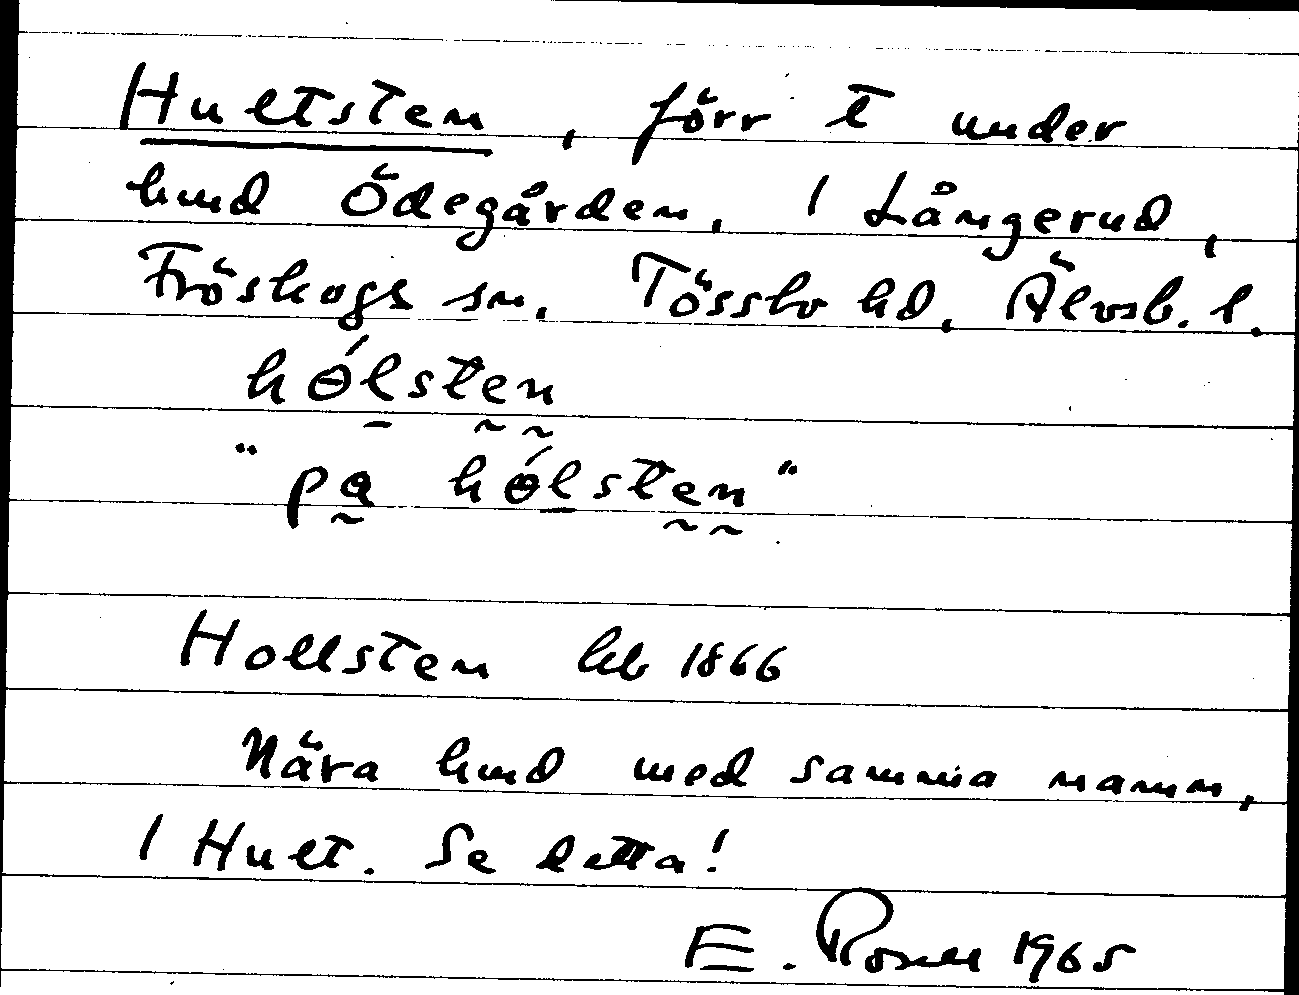 Hultsten, förr t under
hmd Ödegården, 1 Långerud,
Fröskogs sn, Tössbo hd, Älvsb. l.
hɵ́lsten
"pa hɵ́lsten"
Hollsten hfb 1866
Nära hmd med samma namn,
1 Hult. Se detta!
E. Rosell 1965